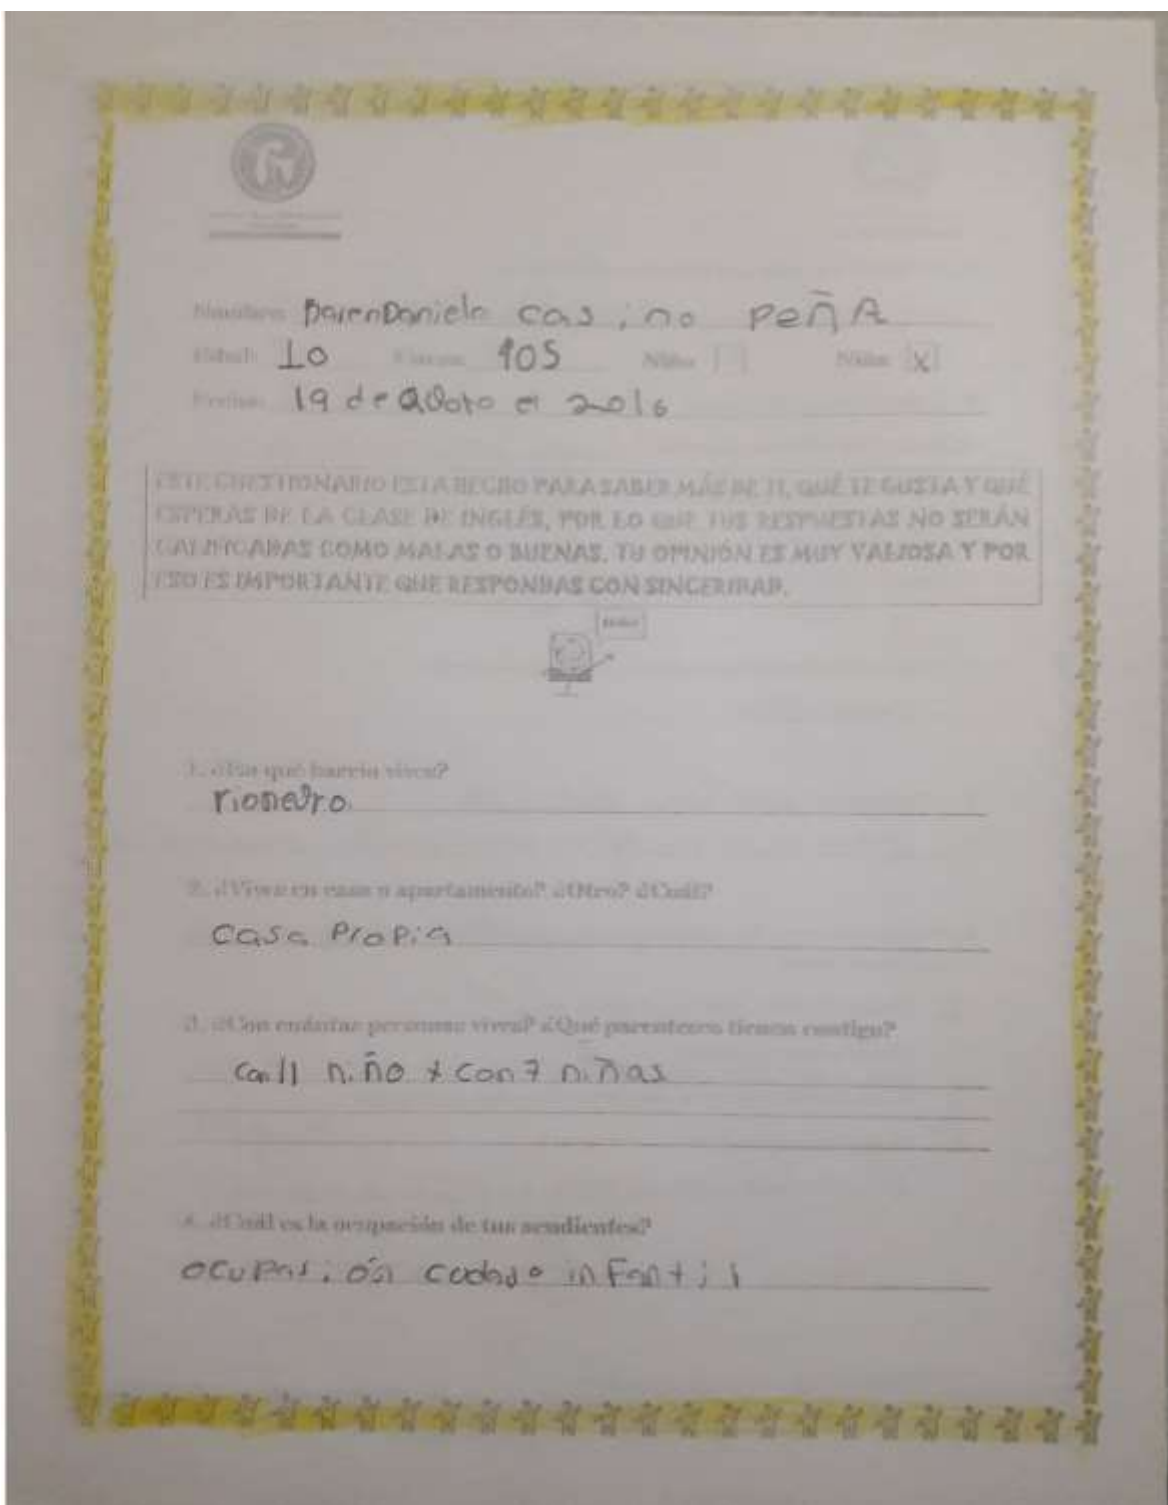 Nombre: DarenDaniela casino PEÑA
Edad: 10 Curso: 105 Niño: Niña: X
Fecha: 19 de agoto el 2016
ESTE CUESTIONARIO ESTA HECHO PARA SABER MÁS DE TI, QUÉ TE GUSTA Y QUÉ
ESPERAS DE LA CLASE DE INGLÉS, POR LO QUE TUS RESPUESTAS NO SERÁN
CALIFICADAS COMO MALAS O BUENAS. TU OPINIÓN ES MUY VALIOSA Y POR
ESO ES IMPORTANTE QUE RESPONDAS CON SINCERIDAD.
1. ¿En qué barrio vives?
rionegro
2. ¿Vives en casa o apartamento? ¿Otro? ¿Cuál?
casa propia
3. ¿Con cuántas personas vives? ¿Qué parentesco tienen contigo?
con 11 niño y con 7 niñas
4. ¿Cuál es la ocupación de tus acudientes?
ocupasión infantil